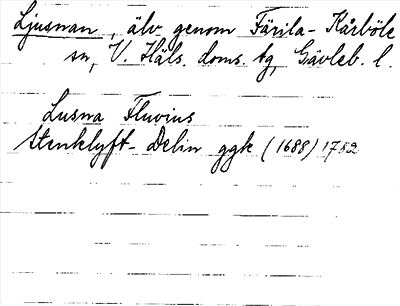 Ljusnan, älv genom Färila-Kårböle
sn, V. Häls. doms. tg, Gävleb. l.
Lusna Fluvius
Stenklyft-Delin ggk (1688) 1782